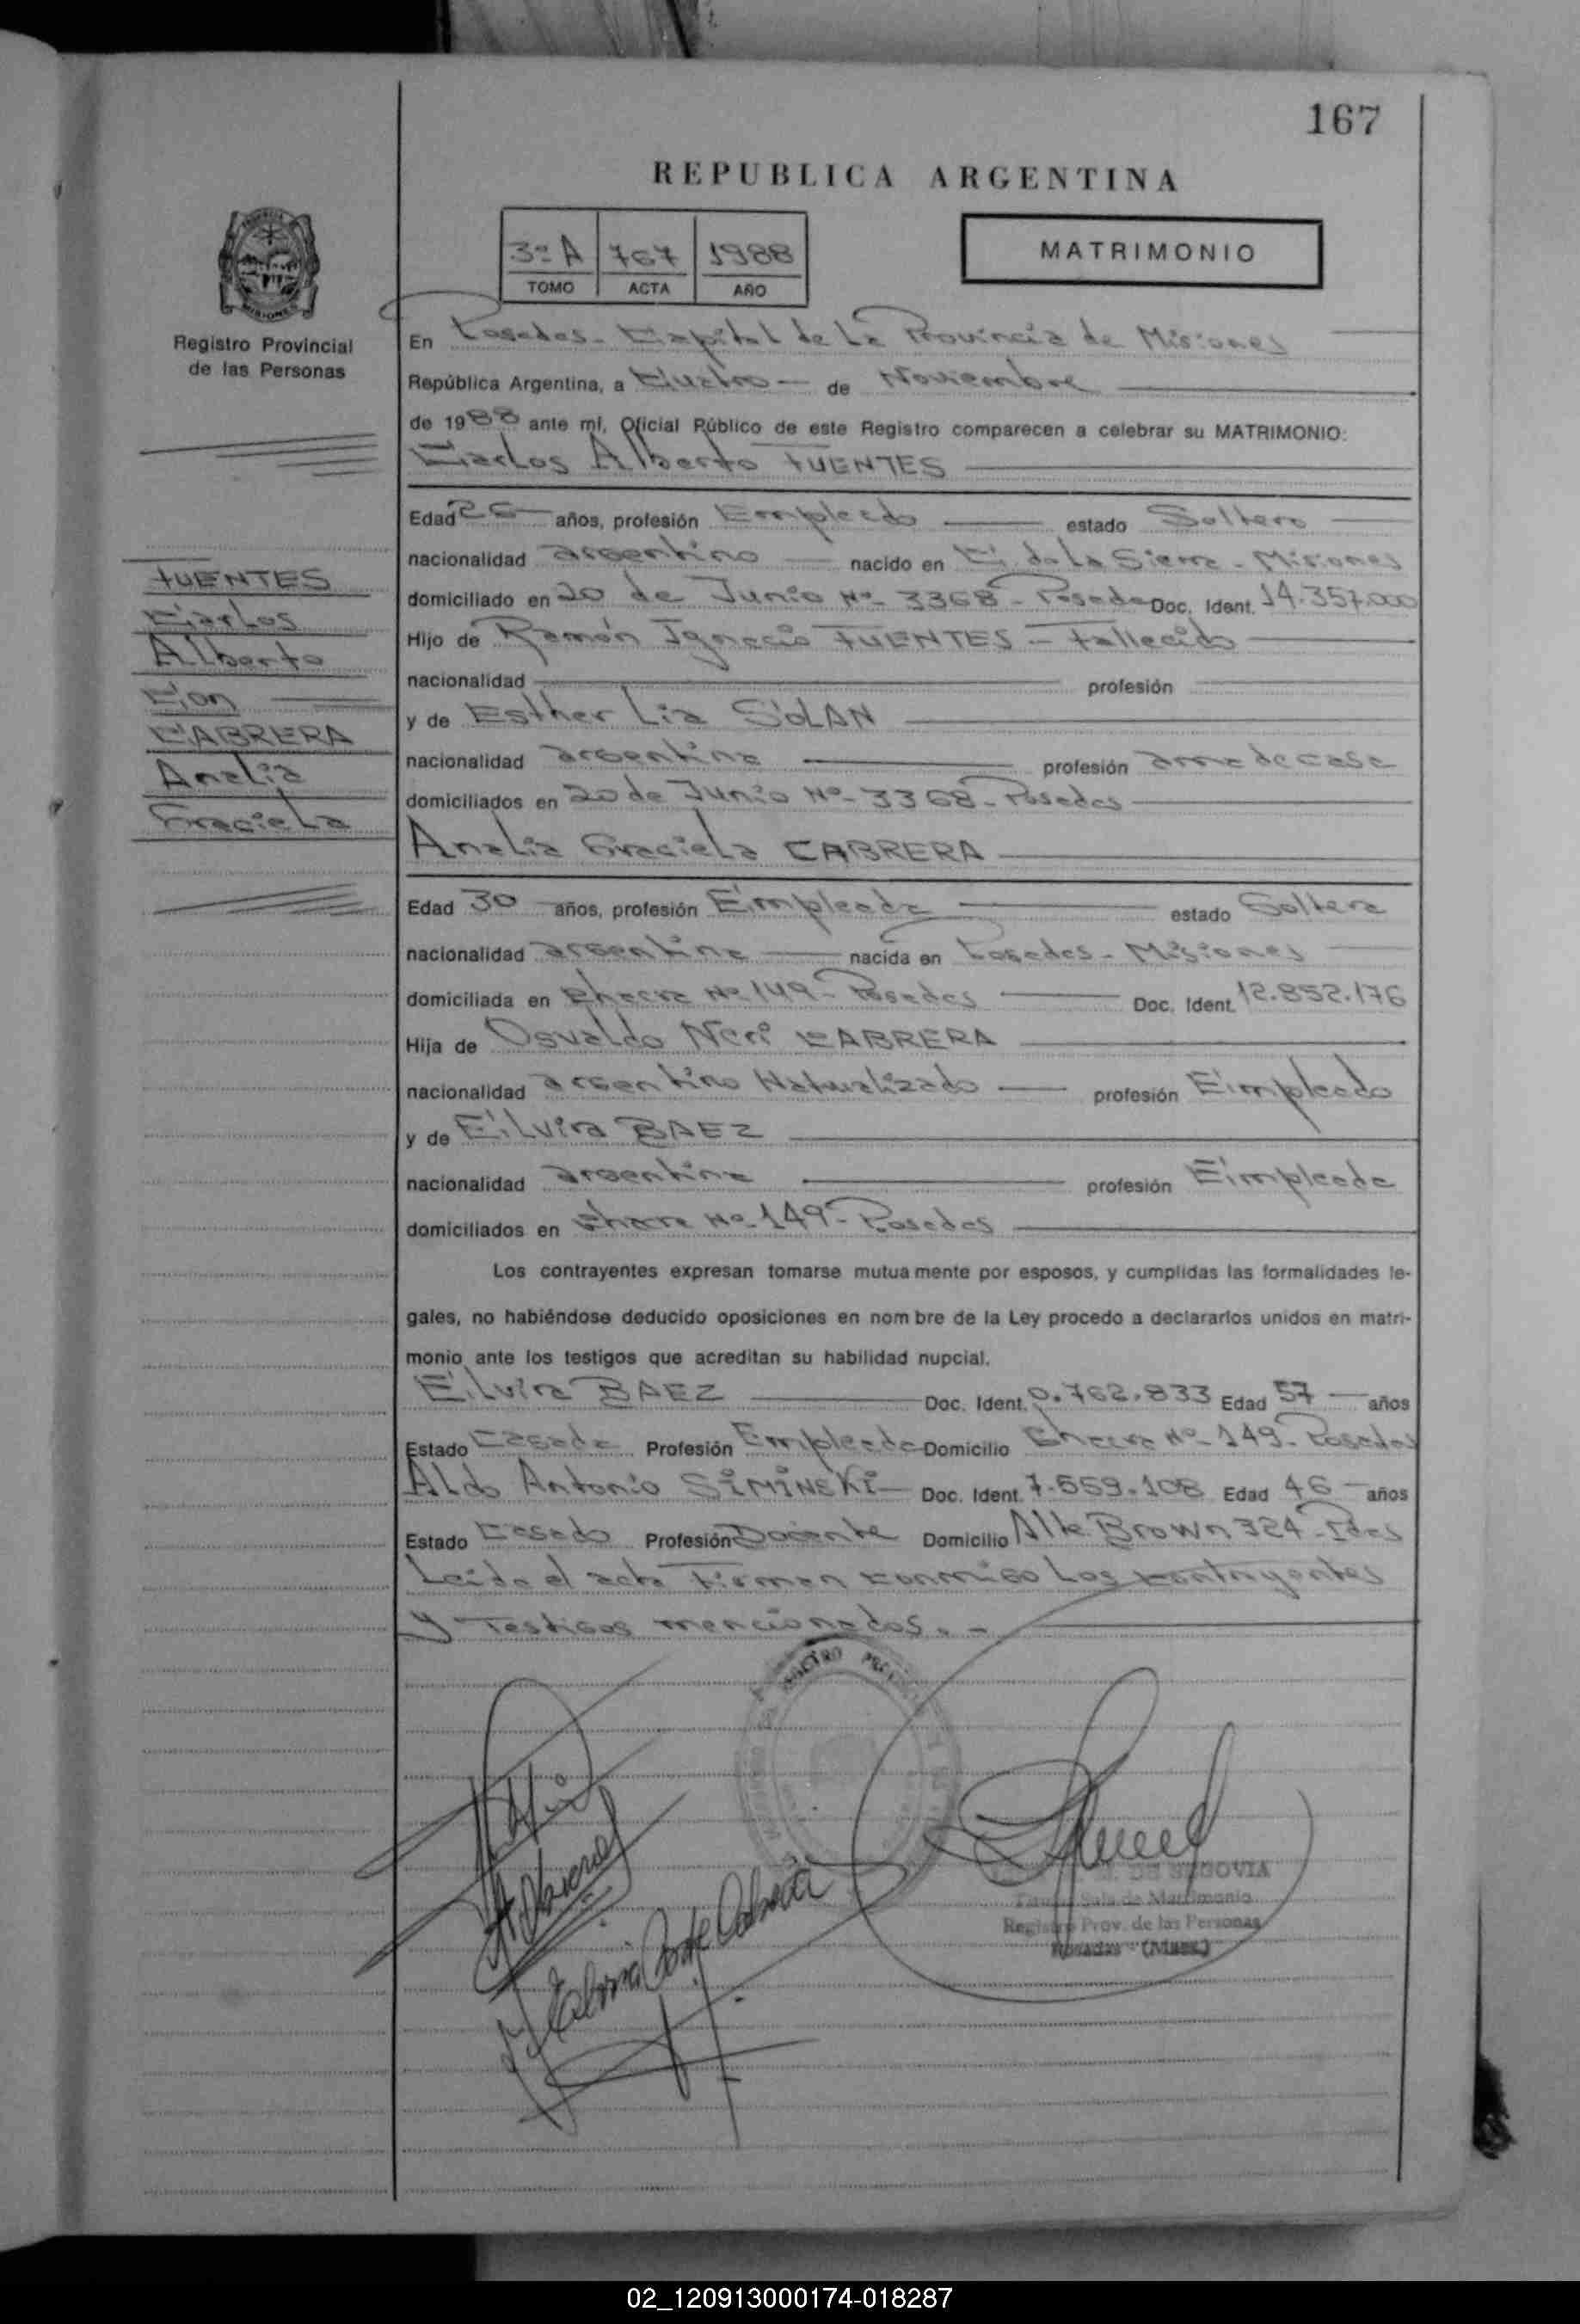 167
REPUBLICA ARGENTINA
3º A 767 1988
TOMO ACTA AÑO
MATRIMONIO
Registro Provincial
de las Personas
En Posadas - Capital de La Provincia de Misiones
República Argentina, a Cuatro — de Noviembre
de 1988 ante mí, Oficial Público de este Registro comparecen a celebrar su MATRIMONIO:
Carlos Alberto FUENTES
Edad 26 años, profesión Empleado estado Soltero
nacionalidad argentino nacido en C. de La Sierra - Misiones
domiciliado en 20 de Junio Nº 3368 - Posadas Doc. Ident. 14.357.000
Hijo de Ramón Ignacio FUENTES - Fallecido
nacionalidad profesión
y de Esther Lia SOLAN
nacionalidad argentina profesión ama de casa
domiciliados en 20 de Junio Nº 3368 - Posadas
FUENTES
Carlos
Alberto
Con
CABRERA
Analia
Graciela
Analia Graciela CABRERA
Edad 30 años, profesión Empleada estado Soltera
nacionalidad argentina nacida en Posadas - Misiones
domiciliada en Chacra Nº 149 - Posadas Doc. Ident. 12.852.176
Hija de Osvaldo Neri CABRERA
nacionalidad argentino Naturalizado profesión Empleado
y de Elvira BAEZ
nacionalidad argentina profesión Empleada
domiciliados en Chacra Nº 149 - Posadas
Los contrayentes expresan tomarse mutua mente por esposos, y cumplidas las formalidades le-
gales, no habiéndose deducido oposiciones en nom bre de la Ley procedo a declararlos unidos en matri-
monio ante los testigos que acreditan su habilidad nupcial.
Elvira BAEZ Doc. Ident. 0.762.833 Edad 57 años
Estado Casada Profesión Empleada Domicilio Chacra Nº 149 - Posadas
Aldo Antonio SIMINSKI Doc. Ident. 7.559.108 Edad 46 años
Estado Casado Profesión Docente Domicilio Alte. Brown 324 - Pdas
Leida el acta Firman conmigo Los contrayentes
y Testigos mencionados. -
DE SEGOVIA
Titular Sala de Matrimonio
Registro Prov. de las Personas
Posadas - (Mnes.)
02_120913000174-018287